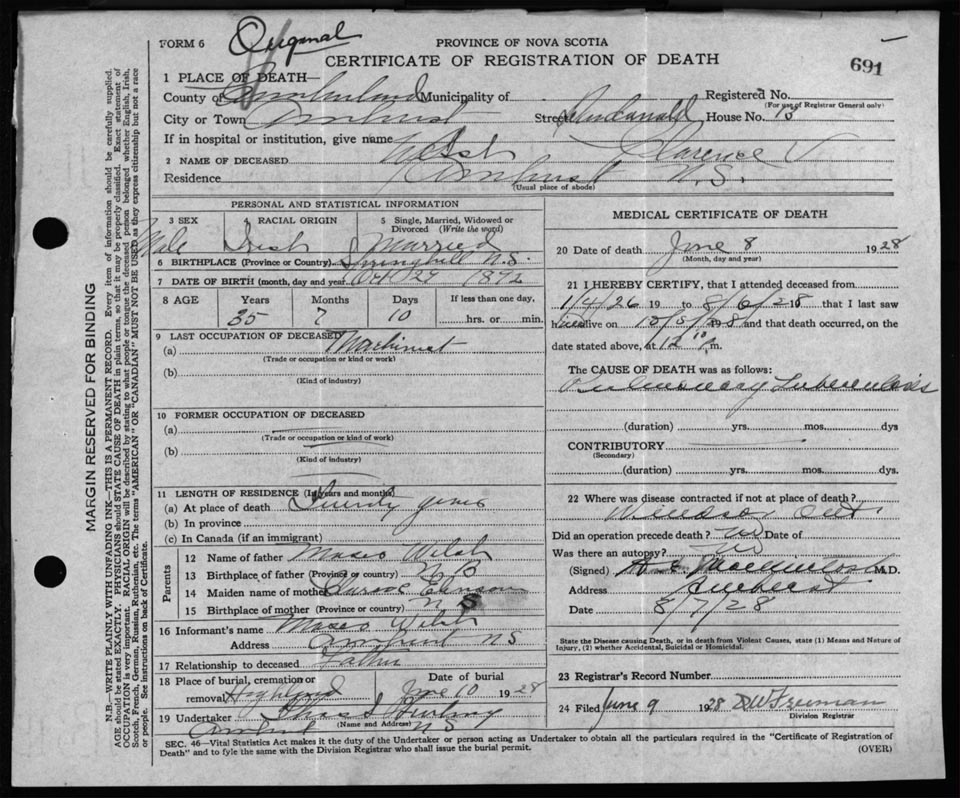 FORM 6 Original
PROVINCE OF NOVA SCOTIA
CERTIFICATE OF REGISTRATION OF DEATH
691
1 PLACE OF DEATH—
County of Cumberland Municipality of Registered No.
(For use of Registrar General only)
City or Town Amherst Street McDonald House No. 13
If in hospital or institution, give name
2 NAME OF DECEASED Welsh Clarence
Residence Amherst N.S.
(Usual place of abode)
PERSONAL AND STATISTICAL INFORMATION
3 SEX 4 RACIAL ORIGIN 5 Single, Married, Widowed or Divorced (Write the word)
Male Irish Married
6 BIRTHPLACE (Province or Country) Springhill N.S.
7 DATE OF BIRTH (month, day and year) Oct 27 1892
8 AGE Years Months Days If less than one day,
35 7 10 hrs. or min.
9 LAST OCCUPATION OF DECEASED
(a) Machinist
(Trade or occupation or kind or work)
(b)
(Kind of industry)
10 FORMER OCCUPATION OF DECEASED
(a)
(Trade or occupation or kind of work)
(b)
(Kind of industry)
11 LENGTH OF RESIDENCE (In years and months)
(a) At place of death Twenty years
(b) In province
(c) In Canada (if an immigrant)
Parents
12 Name of father Welsh
13 Birthplace of father (Province or country) N B
14 Maiden name of mother
15 Birthplace of mother (Province or country) N S
16 Informant's name Welsh
Address Amherst N S
17 Relationship to deceased Father
18 Place of burial, cremation or removal Highland Date of burial June 10 1928
19 Undertaker
(Name and Address)
Amherst N S
MEDICAL CERTIFICATE OF DEATH
20 Date of death June 8 1928
(Month, day and year)
21 I HEREBY CERTIFY, that I attended deceased from
1/4/26 19 to 8/6/28 that I last saw
him alive on 10/5/28 and that death occurred, on the
date stated above, at 12 10 m.
The CAUSE OF DEATH was as follows:
Pulmonary Tuberculosis
(duration) yrs. mos. dys
CONTRIBUTORY
(Secondary)
(duration) yrs. mos. dys.
22 Where was disease contracted if not at place of death?
Windsor Ont
Did an operation precede death? no Date of
Was there an autopsy? no
(Signed) M.D.
Address Amherst
Date 8/7/28
State the Disease causing Death, or in death from Violent Causes, state (1) Means and Nature of Injury, (2) whether Accidental, Suicidal or Homicidal.
23 Registrar's Record Number
24 Filed June 9 1928 DW Freeman
Division Registrar
SEC. 46—Vital Statistics Act makes it the duty of the Undertaker or person acting as Undertaker to obtain all the particulars required in the "Certificate of Registration of
Death" and to fyle the same with the Division Registrar who shall issue the burial permit. (OVER)
MARGIN RESERVED FOR BINDING
N.B.—WRITE PLAINLY WITH UNFADING INK—THIS IS A PERMANENT RECORD. Every item of information should be carefully supplied.
AGE should be stated EXACTLY. PHYSICIANS should STATE CAUSE OF DEATH in plain terms, so that it may be properly classified. Exact statement of
OCCUPATION is very important. RACIAL ORIGIN will be described by stating to what people or tongue the deceased person belonged whether English, Irish,
Scotch, French, German, Russian, Ruthenian, etc. The terms "AMERICAN" OR "CANADIAN" MUST NOT BE USED as they express citizenship but not a race
or people. See instructions on back of Certificate.